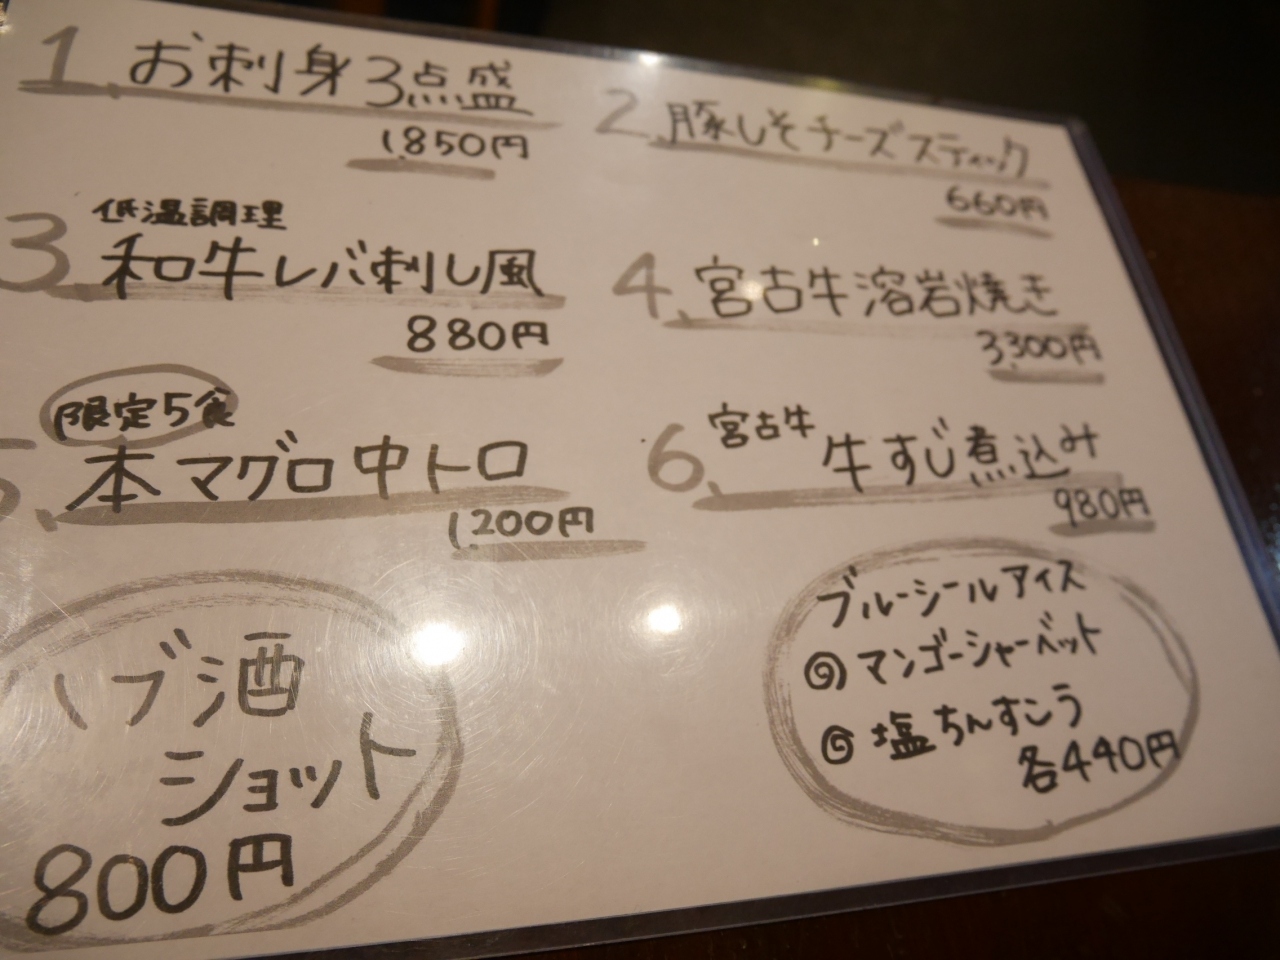 1. お刺身3点盛
1,850円
2. 豚しそチーズスティック
660円
3. 低温調理
和牛レバ刺し風
880円
4. 宮古牛溶岩焼き
3,300円
限定5食
5. 本マグロ中トロ
1,200円
6. 宮古牛 牛すじ煮込み
980円
ハブ酒
ショット
800円
ブルーシールアイス
マンゴーシャーベット
塩ちんすこう
各440円